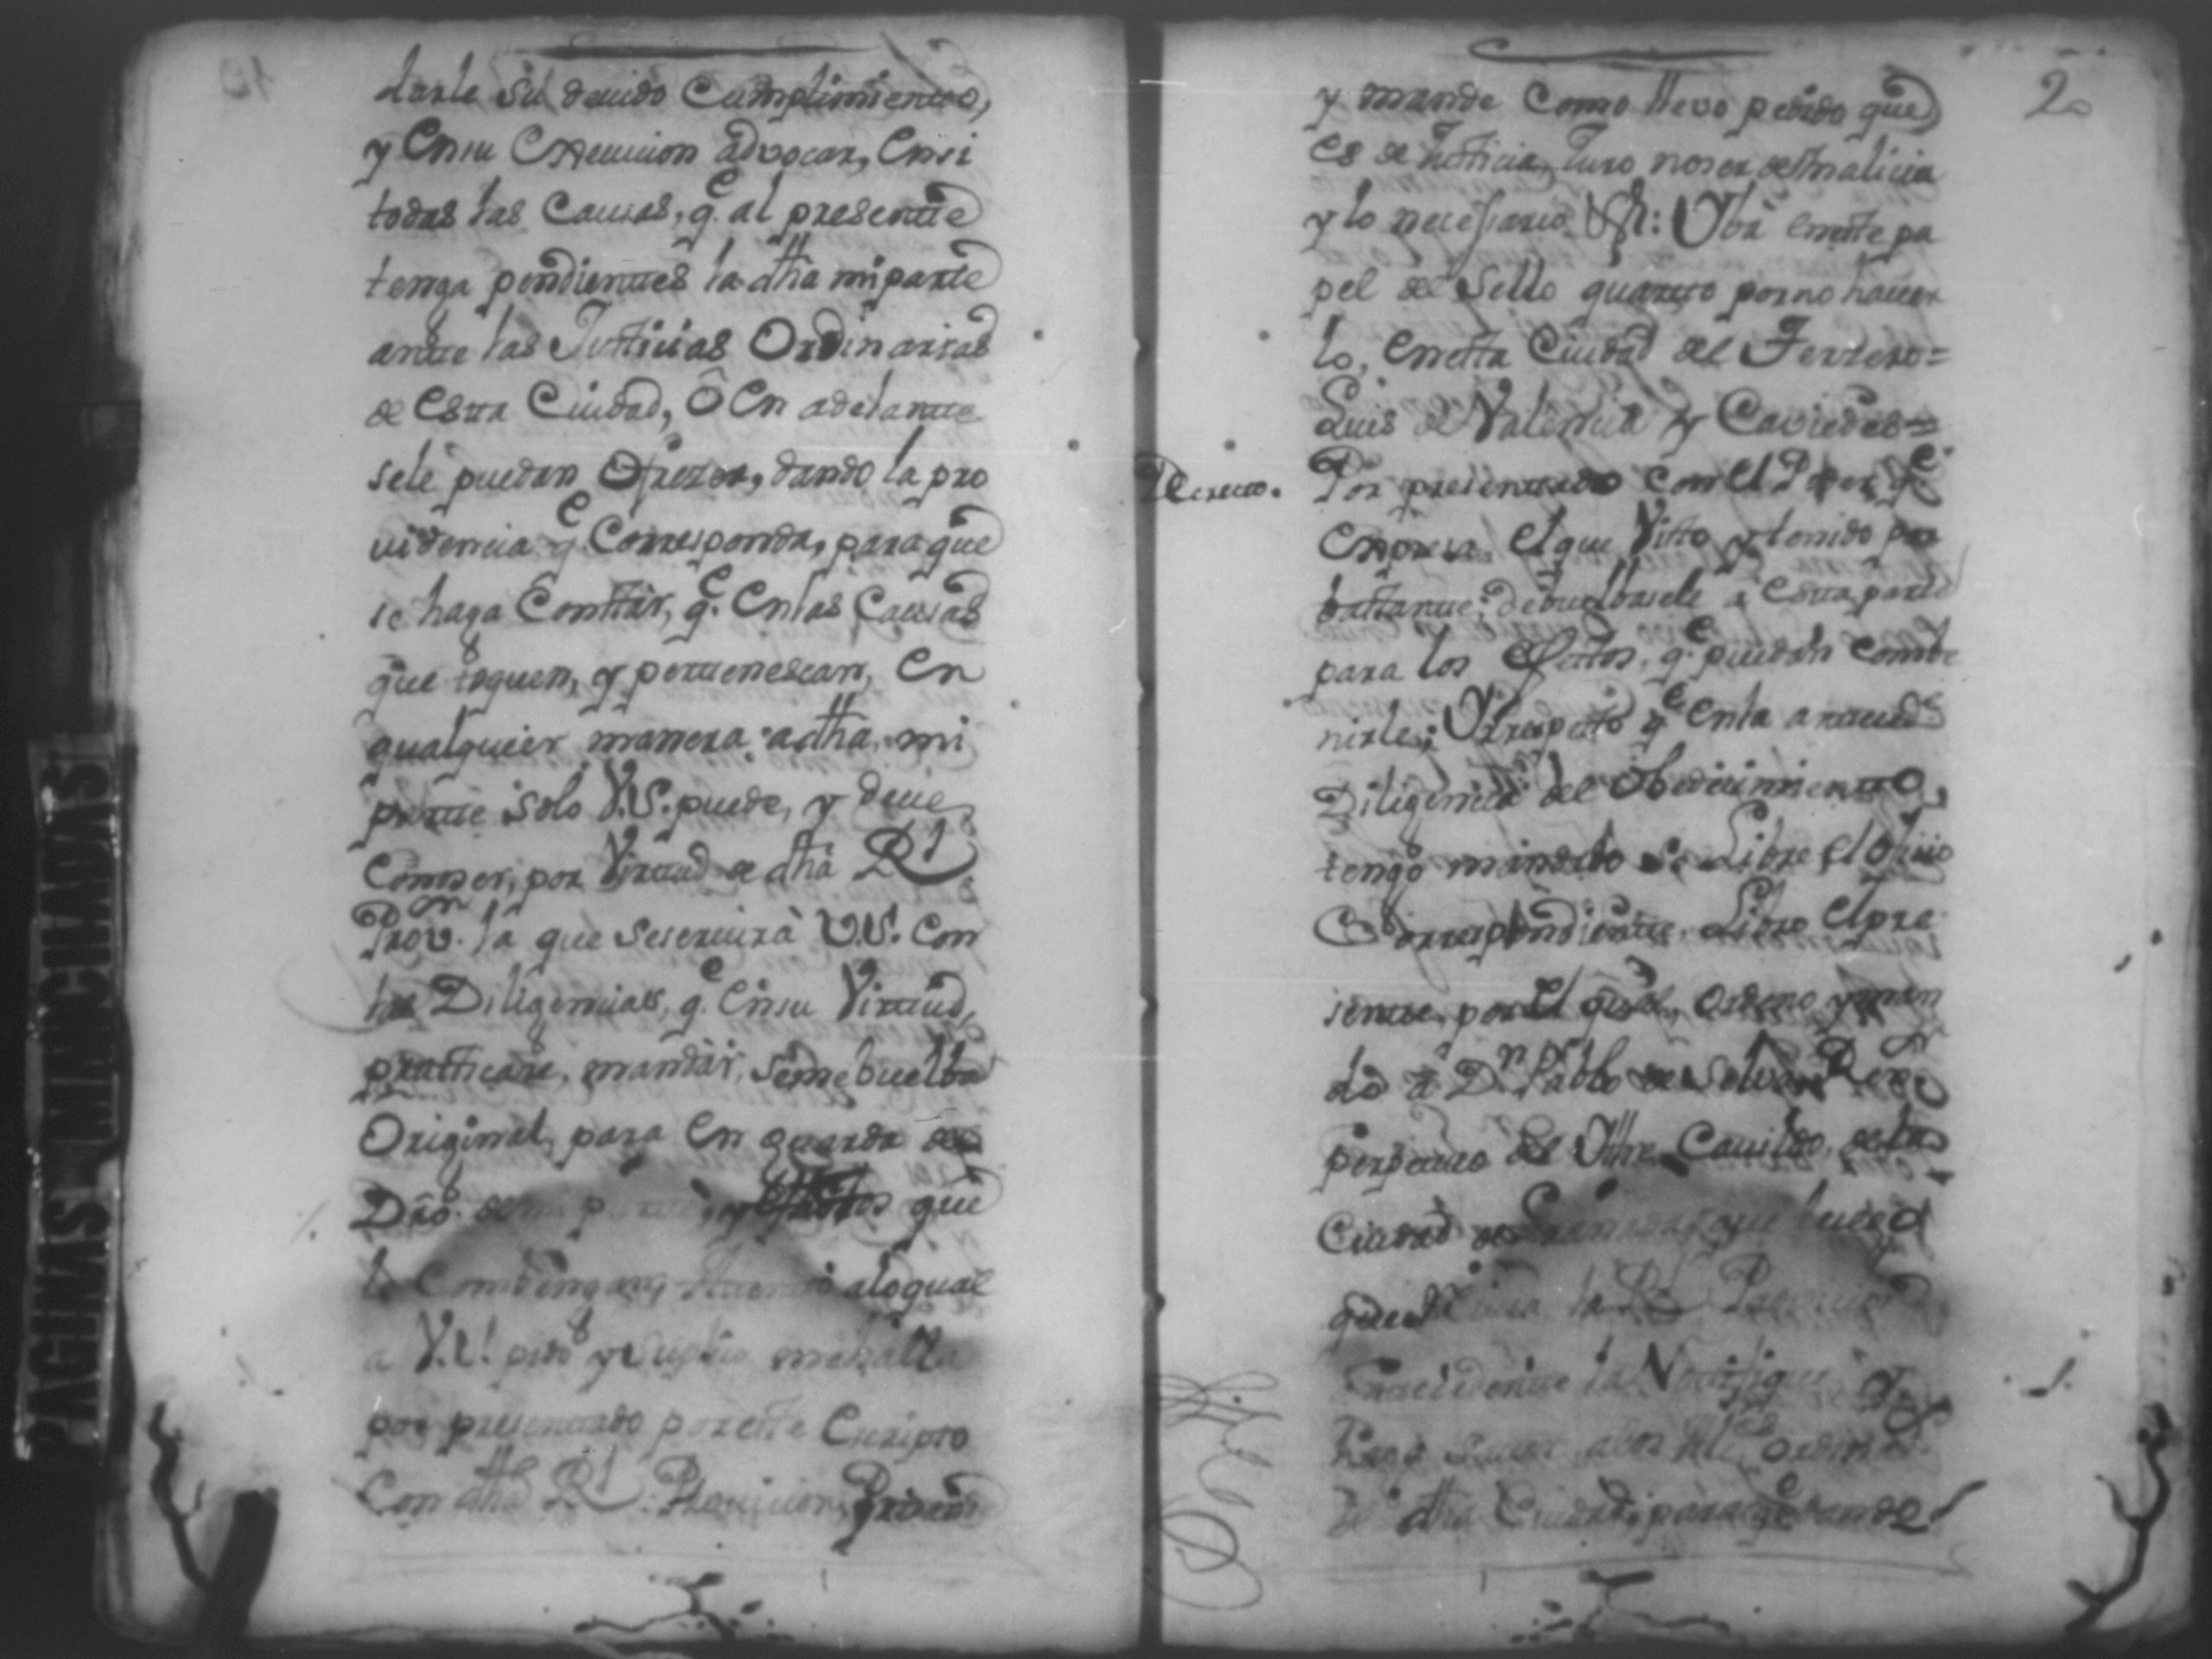 darle su devido Cumplimiento,
y en su Execucion advocar, en si
todas las Causas, q.e al presente
tenga pendientes la dha mi parte
ante las Justicias Ordinarias
de Esta Ciudad, ô En adelante
sele puedan Ofrezer, dando la pro
videncia q.e Corresponda, para que
se haga Constar, q.e En las Causas
que toquen, y pertenescan, En
qualquier manera a dha mi
parte solo V.S. puede, y deve
Conoser, por Virtud de dha Rl
Prov.on la que se servirà V.S. con
las Diligencias, q.e En su Virtud,
practicare, mandar, seme buelba
Original, para En guarda de
Dro. de mi parte, y efectos que
le Combengan, alo qual
a V.S. pido y Suplico me halla
por presentado por este Escripto
Con dha Rl Provicion
PAGINAS MANCHADAS
2
y mande Como llevo pedido que
es de Justicia, Juro no ser de Malicia
y lo necessario &a: Vba En este pa
pel de Sello quarto por no haver
lo, En esta Ciudad del
Luis de Valencia y Caviedes =
Decreto. Por presentado con el Poder q.e
Expresa, el que Visto y tenido por
bastante: debuelbasele a Esta parte
para los Efectos, q.e puedan Combe
nirle; Y respecto q.e En la antecedte
Diligencia del Obedecimiento,
tengo mandado se Libre el Oficio
Correspondiente, Libro El pre
sente, por El qual, Ordeno y man
do â D.n Pablo de
perpetuo del Ittre Cavildo, de la
Ciudad de que luego
que la Rl Provicion
Antecedente la Notifique y
haga Saver, a los Alces
de dha Ciudad, para q.e